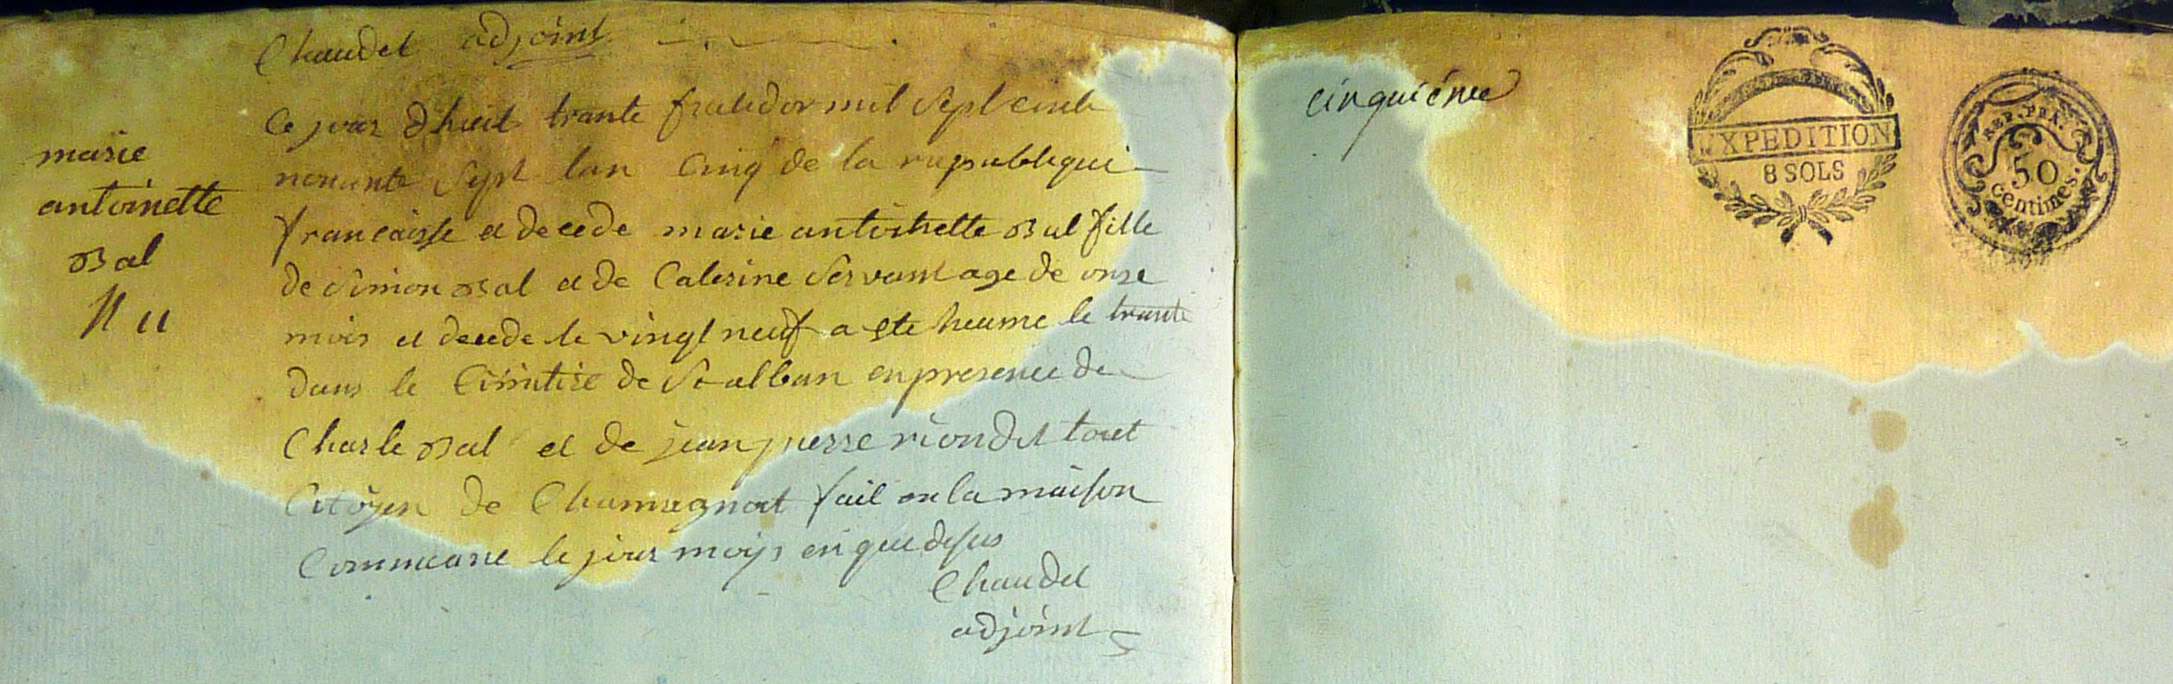 Chaudet adjoint
Ce jour dhuit trante fructidor mil sept cents
nonante sept lan Cinq de la republique
francaisse et decede marie antoinette Bal fille
de Simon Bal et de Caterine Servant age de onze
mois et decede le vingt neuf a ete heume le trante
dans le Cimitire de St alban en presence de
Charle Bal et de jean pierre riondet tout
Citoyen de Chamagnat fait en la maison
Commeune le jour moys en que desus
Chaudet
adjoint
marie
antoinette
Bal
N 11
cinquiéme
EXPEDITION
8 SOLS
REP. FRA.
50
Centimes.